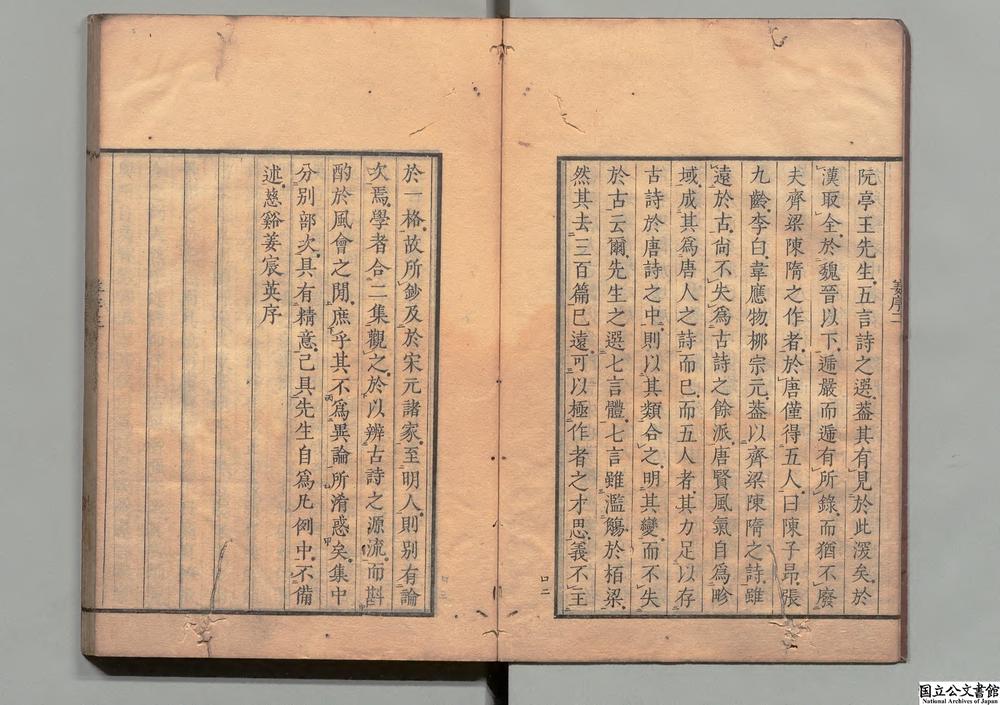 阮亭王先生五言詩之選葢其有見於此深矣於
漢取全於魏晉以下遞嚴而遞有所錄而猶不廢
夫齊梁陳隋之作者於唐僅得五人曰陳子昂張
九齡李白韋應物栁宗元葢以齊梁陳隋之詩雖
遠於古尚不失為古詩之餘派唐賢風氣自為畛
域成其為唐人之詩而已而五人者其力足以存
古詩於唐詩之中則以其類合之明其變而不失
於古云爾先生之選七言體七言雖濫觴於栢梁
然其去三百篇已遠可以極作者之才思義不主
於一格故所鈔及於宋元諸家至明人則别有論
次焉學者合二集觀之於以辨古詩之源流而斟
酌於風會之閒庶乎其不為異論所淆惑矣集中
分别部次具有精意已具先生自為凡例中不備
述慈谿姜宸英序
姜序二
国立公文書館
National Archives of Japan